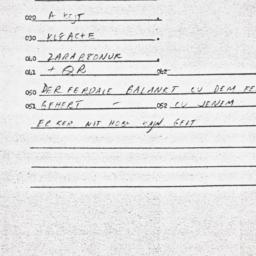 020 A KEJT
030 KLEACTE
040 ZARARTONUK
041 + QR 042
050 DER FERDALE BALANKT CU DEM FE
051 GEHERT - 052 CU JENEM
ER KER NIT HOBN KAJN GELT